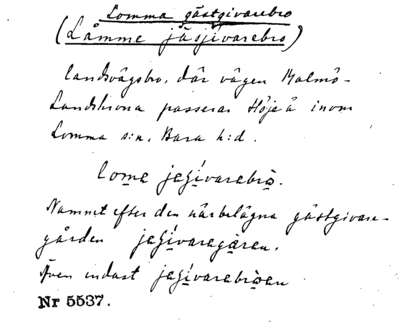 Lomma gästgivarebro
(Låmme jäsjivarebro)
Landsvägsbro, där vägen Malmö-
Landskrona passerar Höje å inom
Lomma s:n, Bara h:d.
lome jeʃivarebrò.
Namnet efter den närbelägna gästgivare-
gården jeʃivaregåren.
Även endast jeʃivarebròen
Nr 5537.